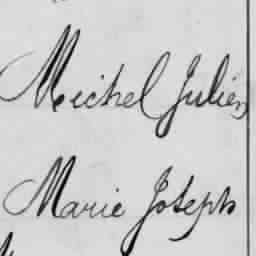 Michel Julien
Marie Joseph